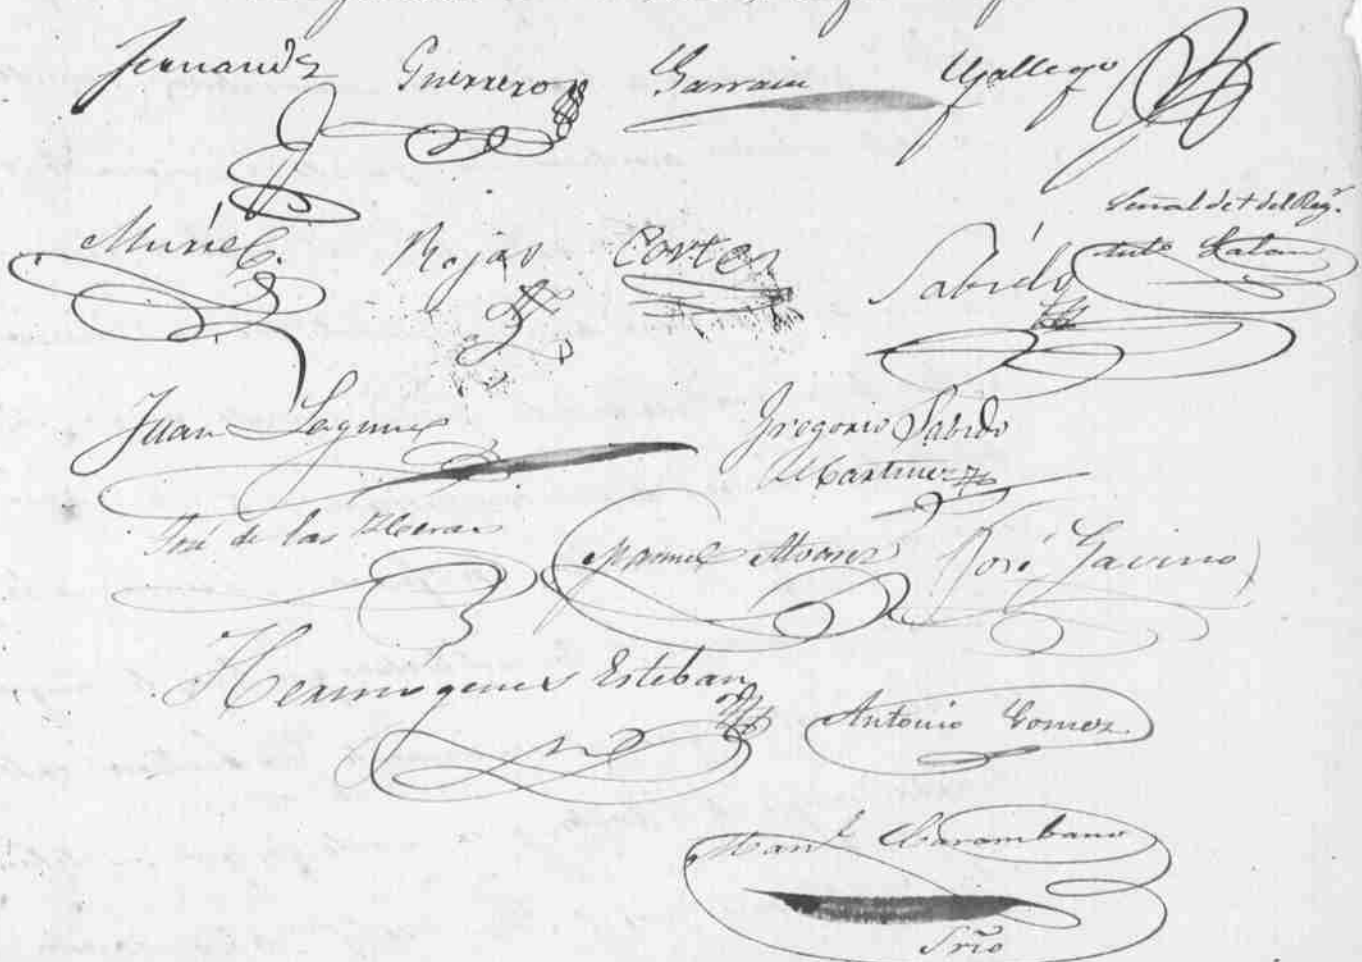 Fernandez Guerrero Garrain Gallego
Señal de + del Reg.r
Muriel. Rojas Cortes Sabido Ant.o
Juan Gregorio Sabido
Martinez
José de las Heras Manuel Alvarez José Gavino
Hermógenes Esteban
Antonio Gomez
Man.l Carambano
Srio